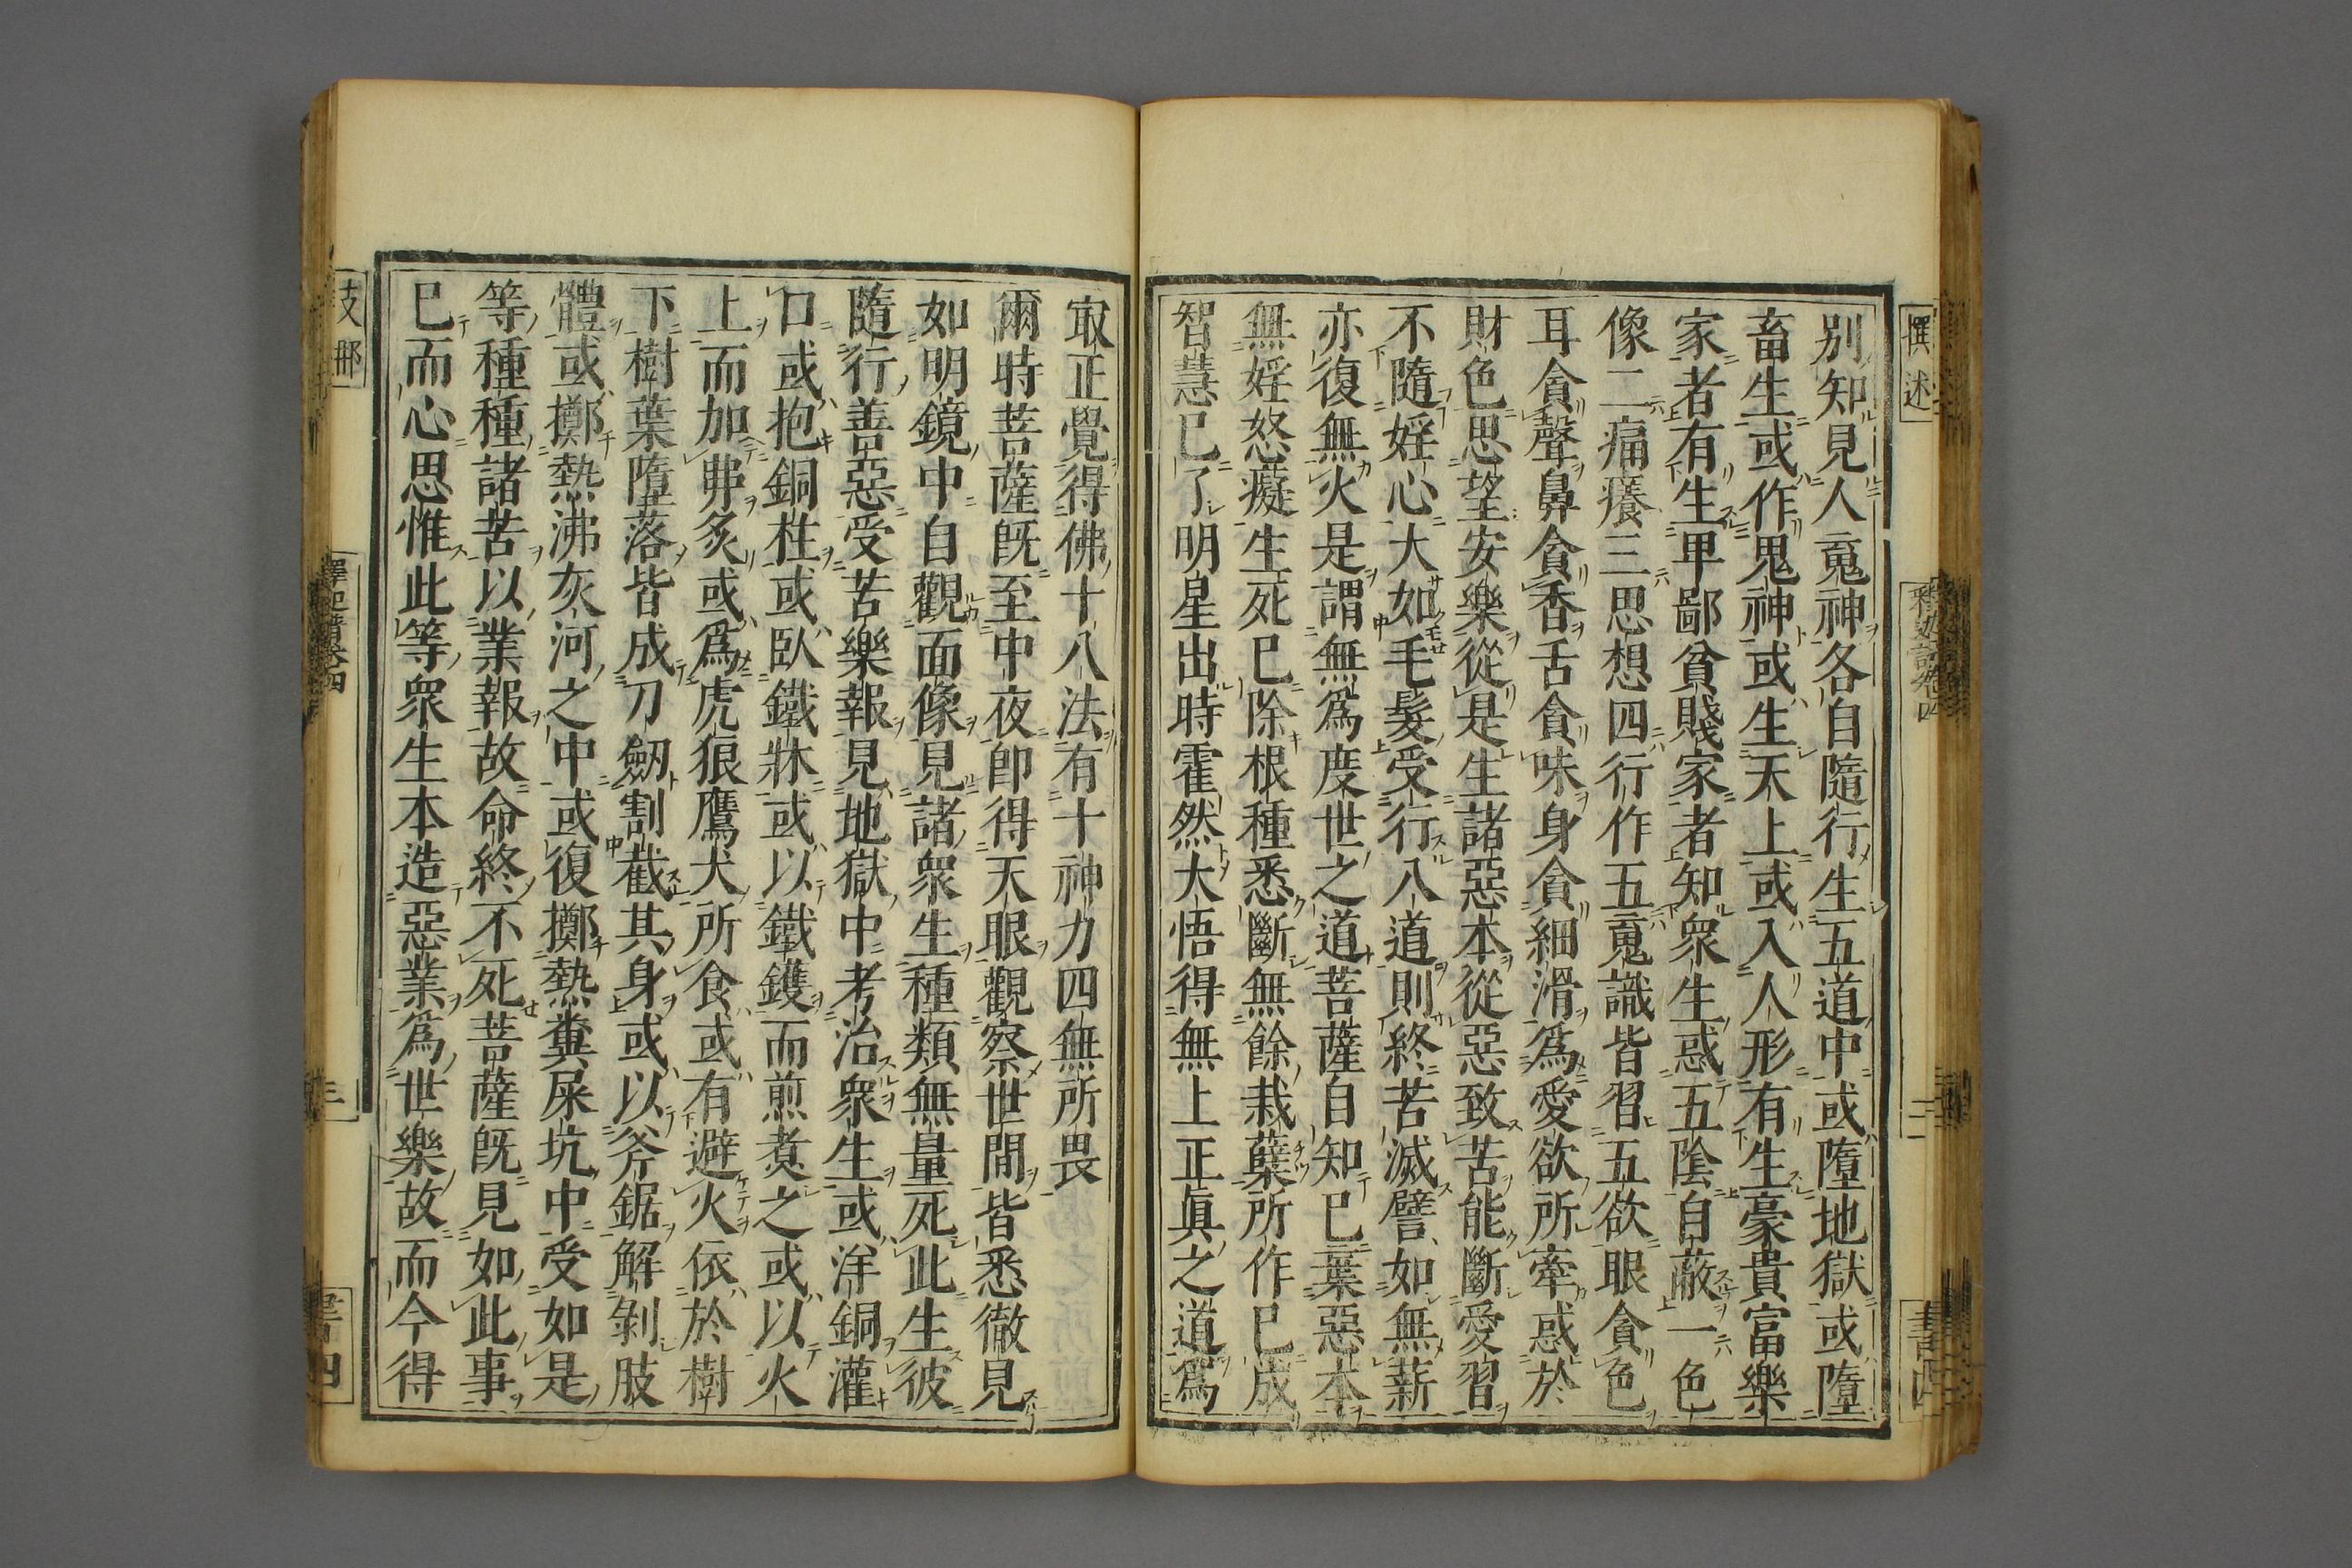 撰述
釋迦譜卷四
二
書四
別知見人䰟神各自隨行生五道中或墮地獄或墮
畜生或作鬼神或生天上或入人形有生豪貴富樂
家者有生𤰞鄙貧賤家者知衆生惑五陰自蔽一色
像二痛癢三思想四行作五䰟識皆習五欲眼貪色
耳貪聲鼻貪香舌貪味身貪細滑爲愛欲所牽惑於
財色思望安樂從是生諸惡本從惡致苦能斷愛習
不隨婬心大如毛髮受行八道則終苦滅譬如無薪
亦復無火是謂無爲度世之道菩薩自知巳棄惡本
無婬怒癡生死巳除根種悉斷無餘栽蘖所作巳成
智慧巳了明星出時霍然大悟得無上正眞之道爲
㝡正覺得佛十八法有十神力四無所畏
爾時菩薩旣至中夜卽得天眼觀察世間皆悉徹見
如明鏡中自觀面像見諸衆生種類無量死此生彼
隨行善惡受苦樂報見地獄中考治衆生或洋銅灌
口或抱銅柱或臥鐵牀或以鐵鑊而煎煑之或以火
上而加丳炙或爲虎狼鷹犬所食或有避火依於樹
下樹葉墮落皆成刀劒割截其身或以斧鋸解剝肢
體或擲熱沸灰河之中或復擲熱糞屎坑中受如是
等種種諸苦以業報故命終不死菩薩旣見如此事
巳而心思惟此等衆生本造惡業爲世樂故而今得
支那
釋迦譜卷四
三
書四